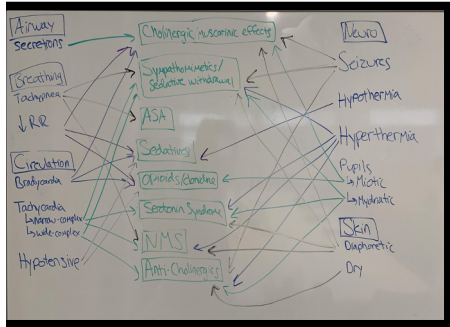 Airway
secretions
Breathing
Tachypnea
↓RR
Circulation
Bradycardia
Tachycardia
↳narrow-complex
↳wide-complex
Hypotensive
Cholinergic muscarinic effects
Sympathomimetics/
sedative withdrawal
ASA
Sedatives
opioids/clonidine
Serotonin Syndrome
NMS
Anti-Cholinergics
Neuro
Seizures
Hypothermia
Hyperthermia
Pupils
↳Miotic
↳Mydriatic
Skin
Diaphoretic
Dry